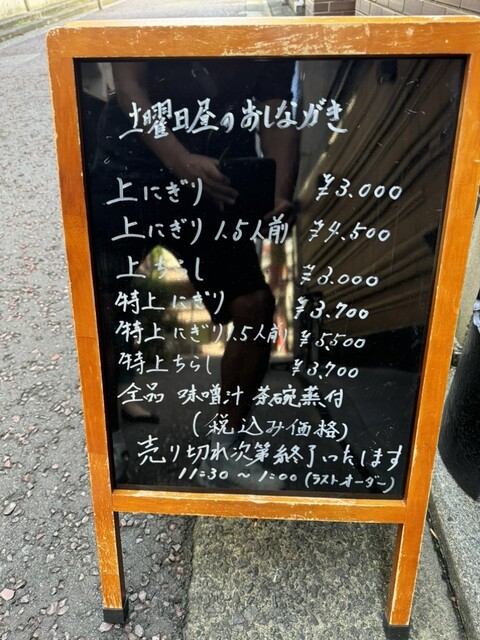 土曜日昼のおしながき
上にぎり ¥3.000
上にぎり 1.5人前 ¥4.500
上ちらし ¥3.000
特上にぎり ¥3.700
特上にぎり1.5人前 ¥5,500
特上ちらし ¥3,700
全品 味噌汁 茶碗蒸付
(税込み価格)
売り切れ次第終了いたします
11:30 ～ 1:00 (ラストオーダー)